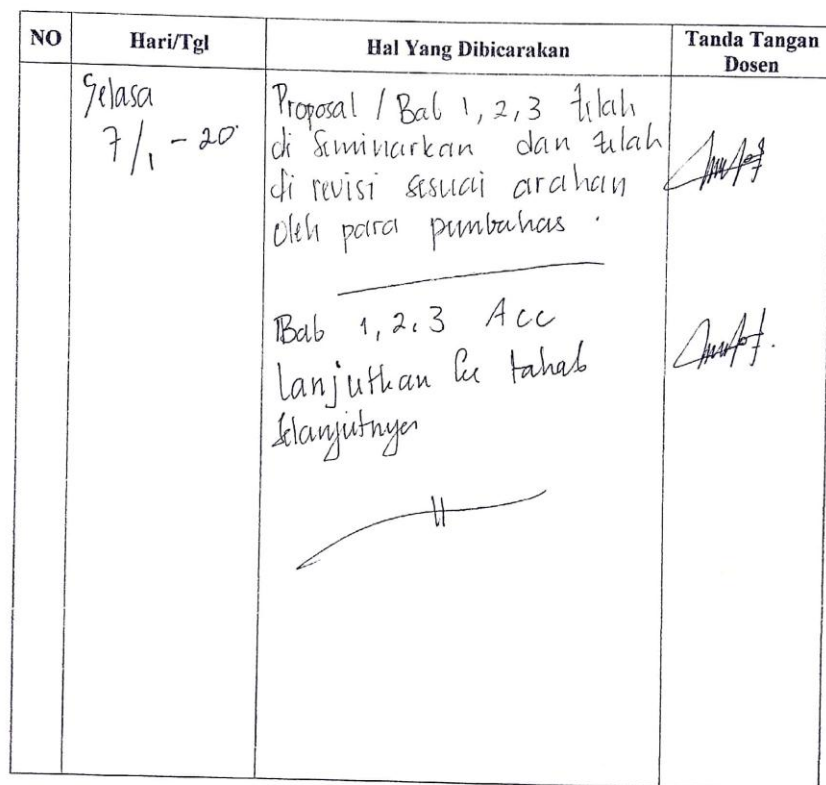 NO Hari/Tgl Hal Yang Dibicarakan Tanda Tangan
Dosen
Selasa
7/1 - 20
Proposal / Bab 1, 2, 3 telah
di Seminarkan dan telah
di revisi sesuai arahan
oleh para pembahas.
Bab 1, 2, 3 Acc
Lanjutkan ke tahab
selanjutnya